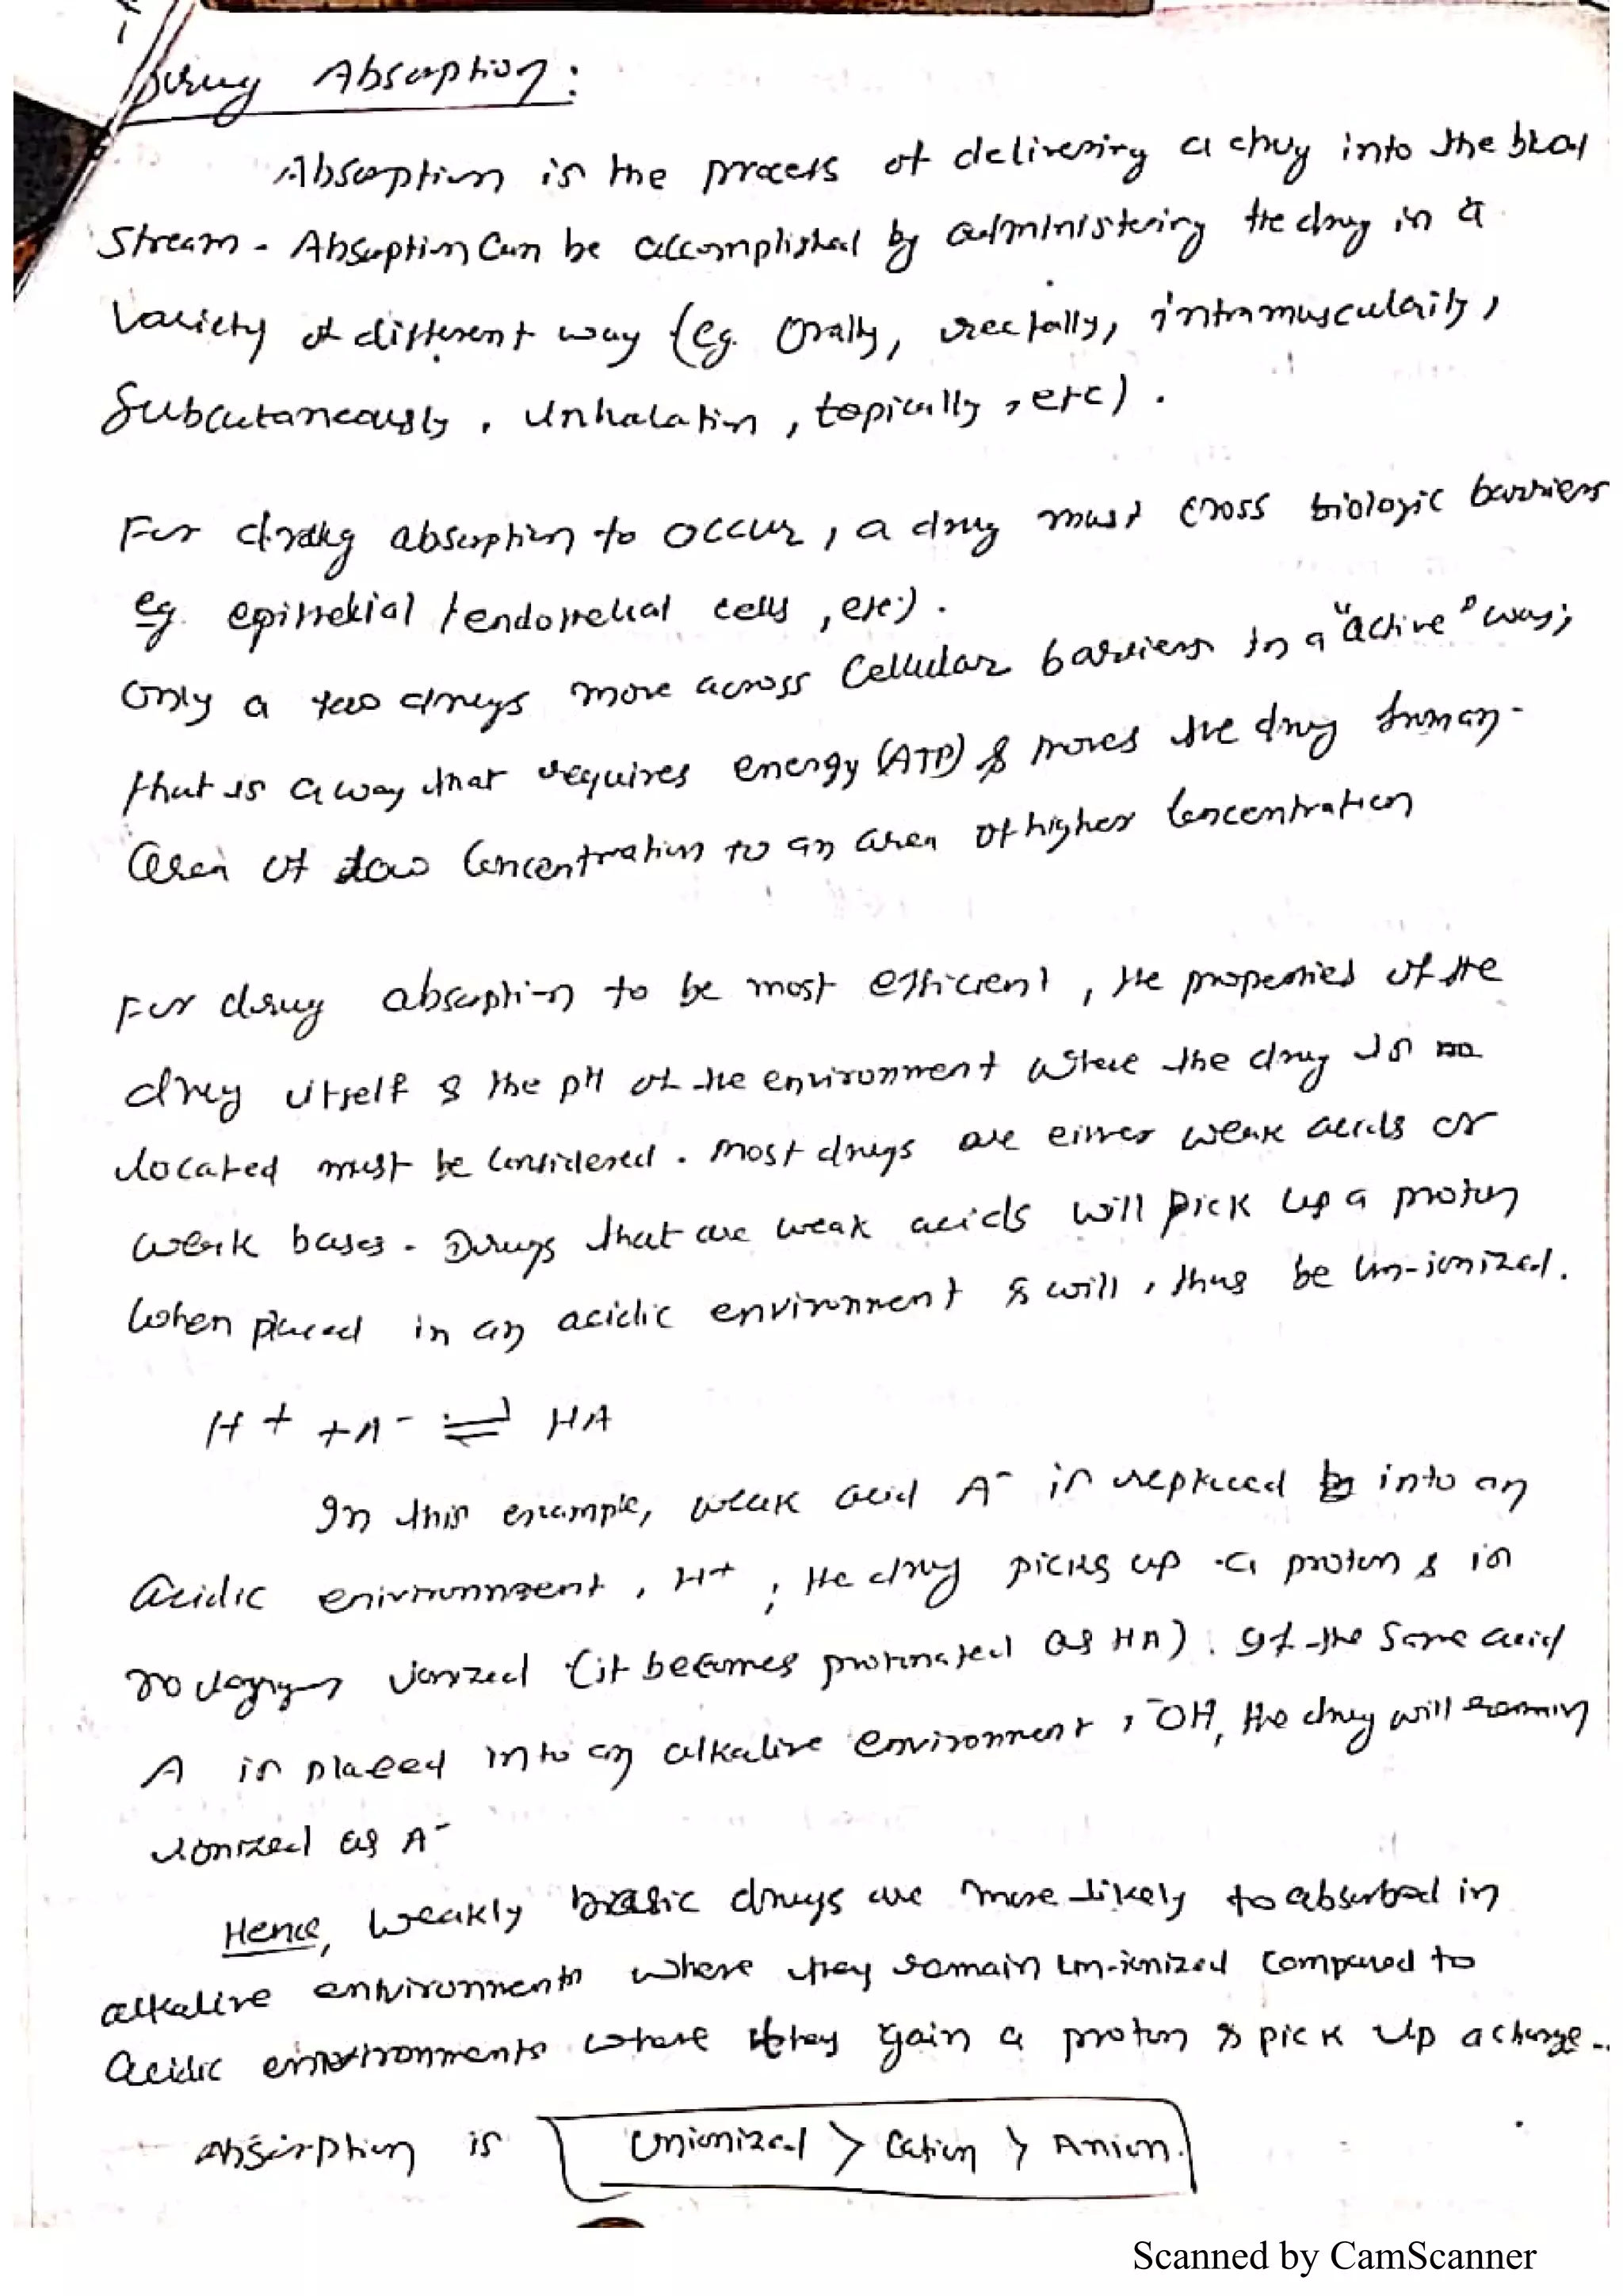 Drug Absorption:
Absorption is the process of delivering a drug into the blood
stream. Absorption Can be accomplished by administering the drug in a
Variety of different way (eg. Orally, rectally, intramuscularily,
Subcutaneously, Inhalation, topically, etc).
For drug absorption to occur, a drug must cross biologic barriers
eg. epithelial / endothelial cells, etc.).
Only a few drugs move across Cellular barriers in a "active" way;
that is a way that requires energy (ATP) & moves the drug from an
area of low Concentration to an area of higher Concentration
For drug absorption to be most efficient, the properties of the
drug itself & the pH of the environment where the drug is
located must be Considered. Most drugs are either weak acids or
weak bases. Drugs that are weak acids will pick up a proton
when placed in an acidic environment & will, thus be un-ionized.
H+ + A- ⇌ HA
In this example, weak acid A- is replaced into an
acidic environment, H+, the drug picks up a proton & is
no longer ionized (it becomes protonated as HA). If the Same acid
A is placed into an alkaline environment, -OH, the drug will remain
ionized as A-
Hence, Weakly basic drugs are more likely to absorbed in
alkaline environments where they remain un-ionized Compared to
acidic environments where they gain a proton & pick up a charge.
absorption is Unionized > Cation > Anion.
Scanned by CamScanner